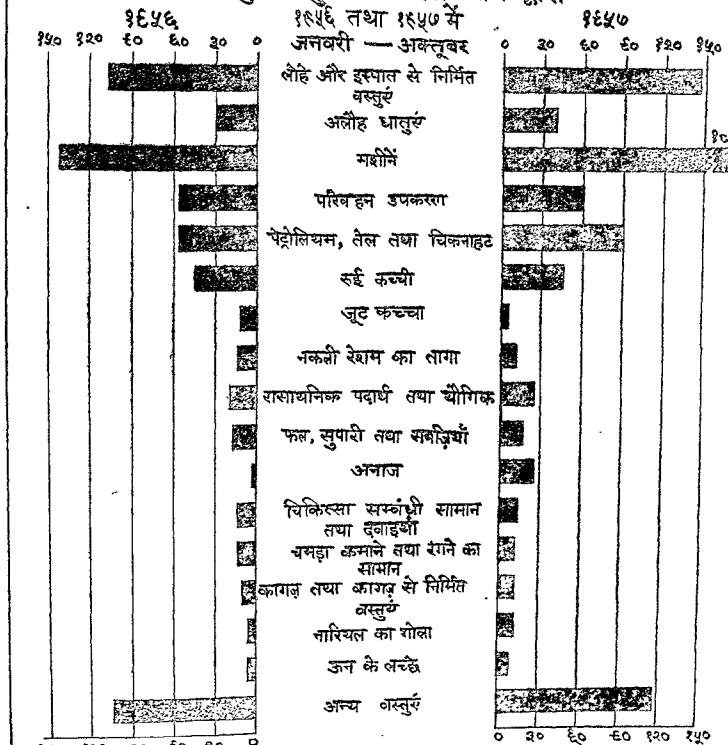 १९५६ तथा १९५७ में
जनवरी — अक्तूबर
१९५६
१५० १२० ९० ६० ३० ०
१९५७
० ३० ६० ९० १२० १५०
लोहे और इस्पात से निर्मित
वस्तुएं
अलौह धातुएं
मशीनें
परिवहन उपकरण
पेट्रोलियम, तेल तथा चिकनाहट
रुई कच्ची
जूट कच्चा
नकली रेशम का तागा
रासायनिक पदार्थ तथा यौगिक
फल, सुपारी तथा सबज़ियाँ
अनाज
चिकित्सा सम्बंधी सामान
तथा दवाइयाँ
चमड़ा कमाने तथा रंगने का
सामान
कागज़ तथा कागज़ से निर्मित
वस्तुएं
नारियल का गोला
ऊन के लच्छे
अन्य वस्तुएं
० ३० ६० ९० १२० १५०